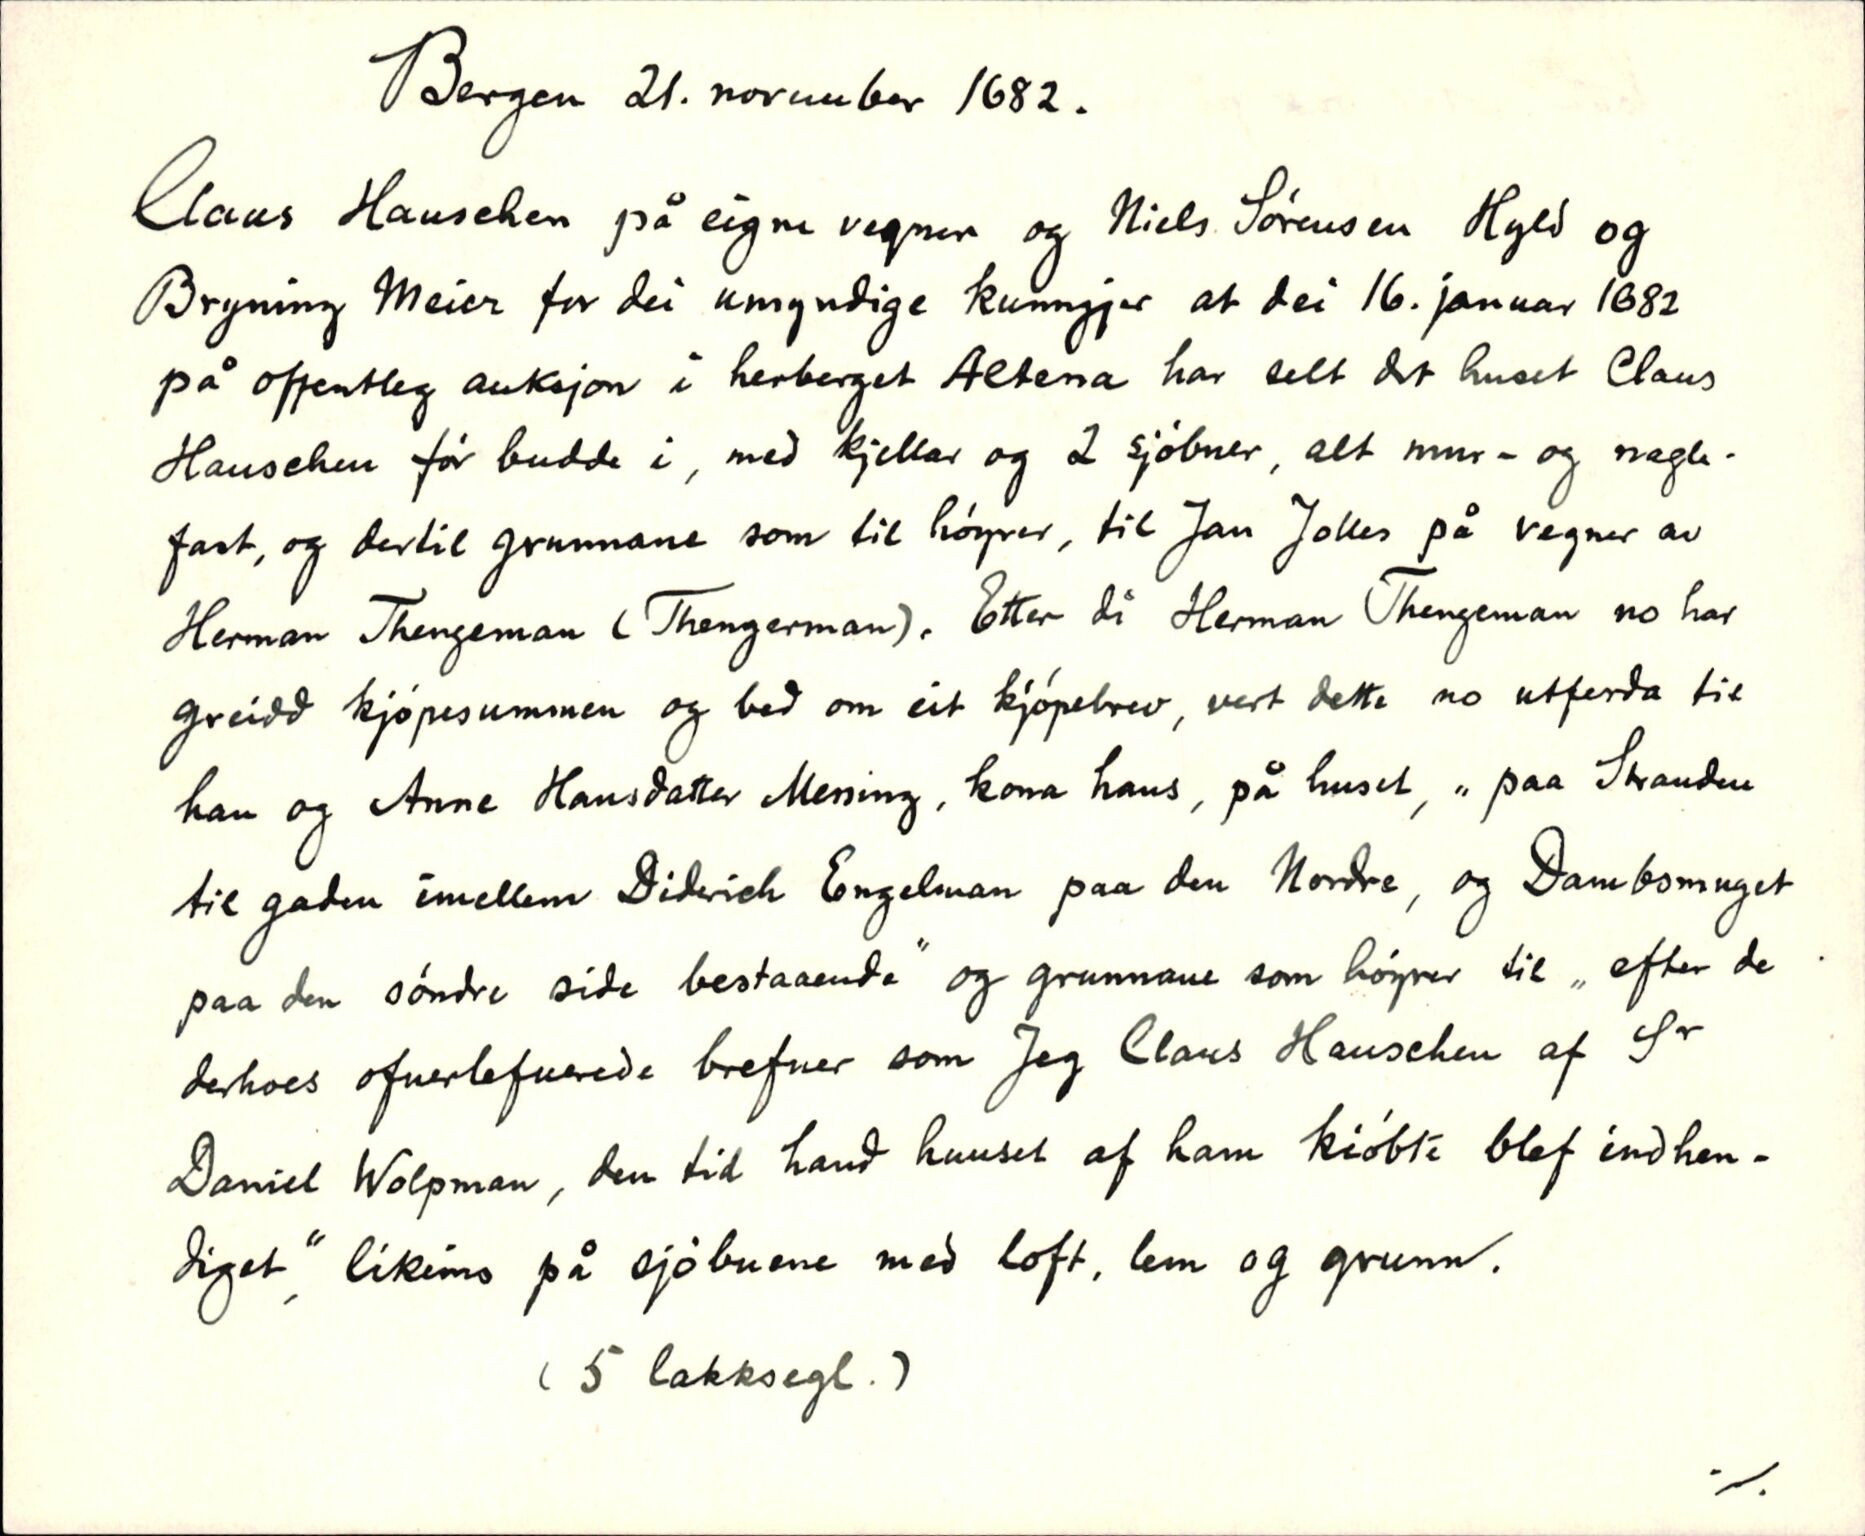 Bergen 21. november 1682.
Claus Hauschen på eigne vegner og Niels Sörensen Hyld og
Bryning Meier for dei umyndige kunngjer at dei 16. januar 1682
på offentleg auksjon i herberget Altena har selt det huset Claus
Hauschen fór budde i, med kjellar og 2 sjóbuer, alt mur- og nagle-
fast, og dertil grunnane som til hóyrer, til Jan Jolles på vegner av
Herman Thengeman (Thengerman). Etter di Herman Thengeman no har
greidd kjópesummen og bed om eit kjópebrev, vert dette no utferda til
han og Anne Hansdatter Messing, kona hans, på huset, „paa Stranden
til gaden imellem Diderich Engelman paa den Nordre, og Dambsmuget
paa den sóndre side bestaaende" og grunnane som hóyrer til „efter de
derhoes ofuerlefuerede brefuer som Jeg Claus Hauschen af Sr
Daniel Wolpman, den tid hand huuset af ham kióbte blef indhen-
diget," likeins på sjóbuene med loft, lem og grunn.
(5 lakksegl.)
./.